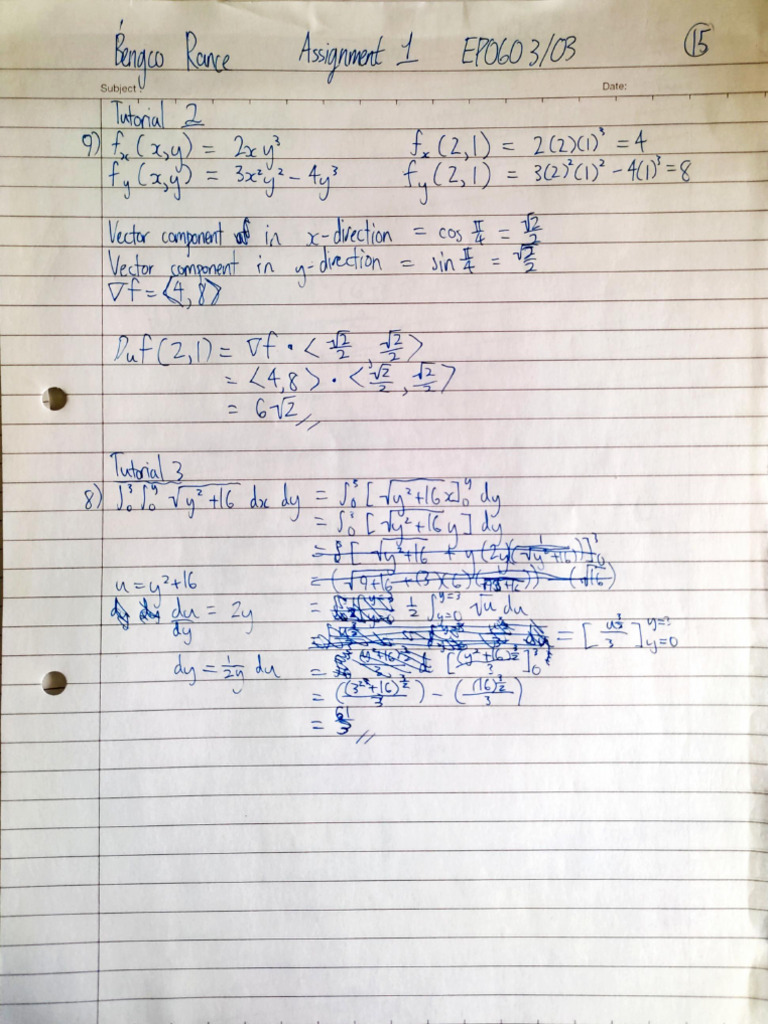 Bengco Rance Assignment 1 EP0603/03 15
Subject: Date:
Tutorial 2
9) fₓ(x,y) = 2xy³ fₓ(2,1) = 2(2)(1)³ = 4
f_y(x,y) = 3x²y² - 4y³ f_y(2,1) = 3(2)²(1)² - 4(1)³ = 8
Vector component in x-direction = cos π/4 = √2/2
Vector component in y-direction = sin π/4 = √2/2
∇f = <4,8>
Dᵤf(2,1) = ∇f • <√2/2, √2/2>
= <4,8> • <√2/2, √2/2>
= 6√2 //
Tutorial 3
8) ∫₀³∫₀ʸ √(y²+16) dx dy = ∫₀³ [√(y²+16) x]₀ʸ dy
= ∫₀³ [√(y²+16) y] dy
u = y²+16
du/dy = 2y = 1/2 ∫_{y=0}^{y=3} √u du
= [u^(3/2)/3]_{y=0}^{y=3}
dy = 1/2y du = [(y²+16)^(3/2)/3]₀³
= ((3²+16)^(3/2)/3) - ((16)^(3/2)/3)
= 61/3 //